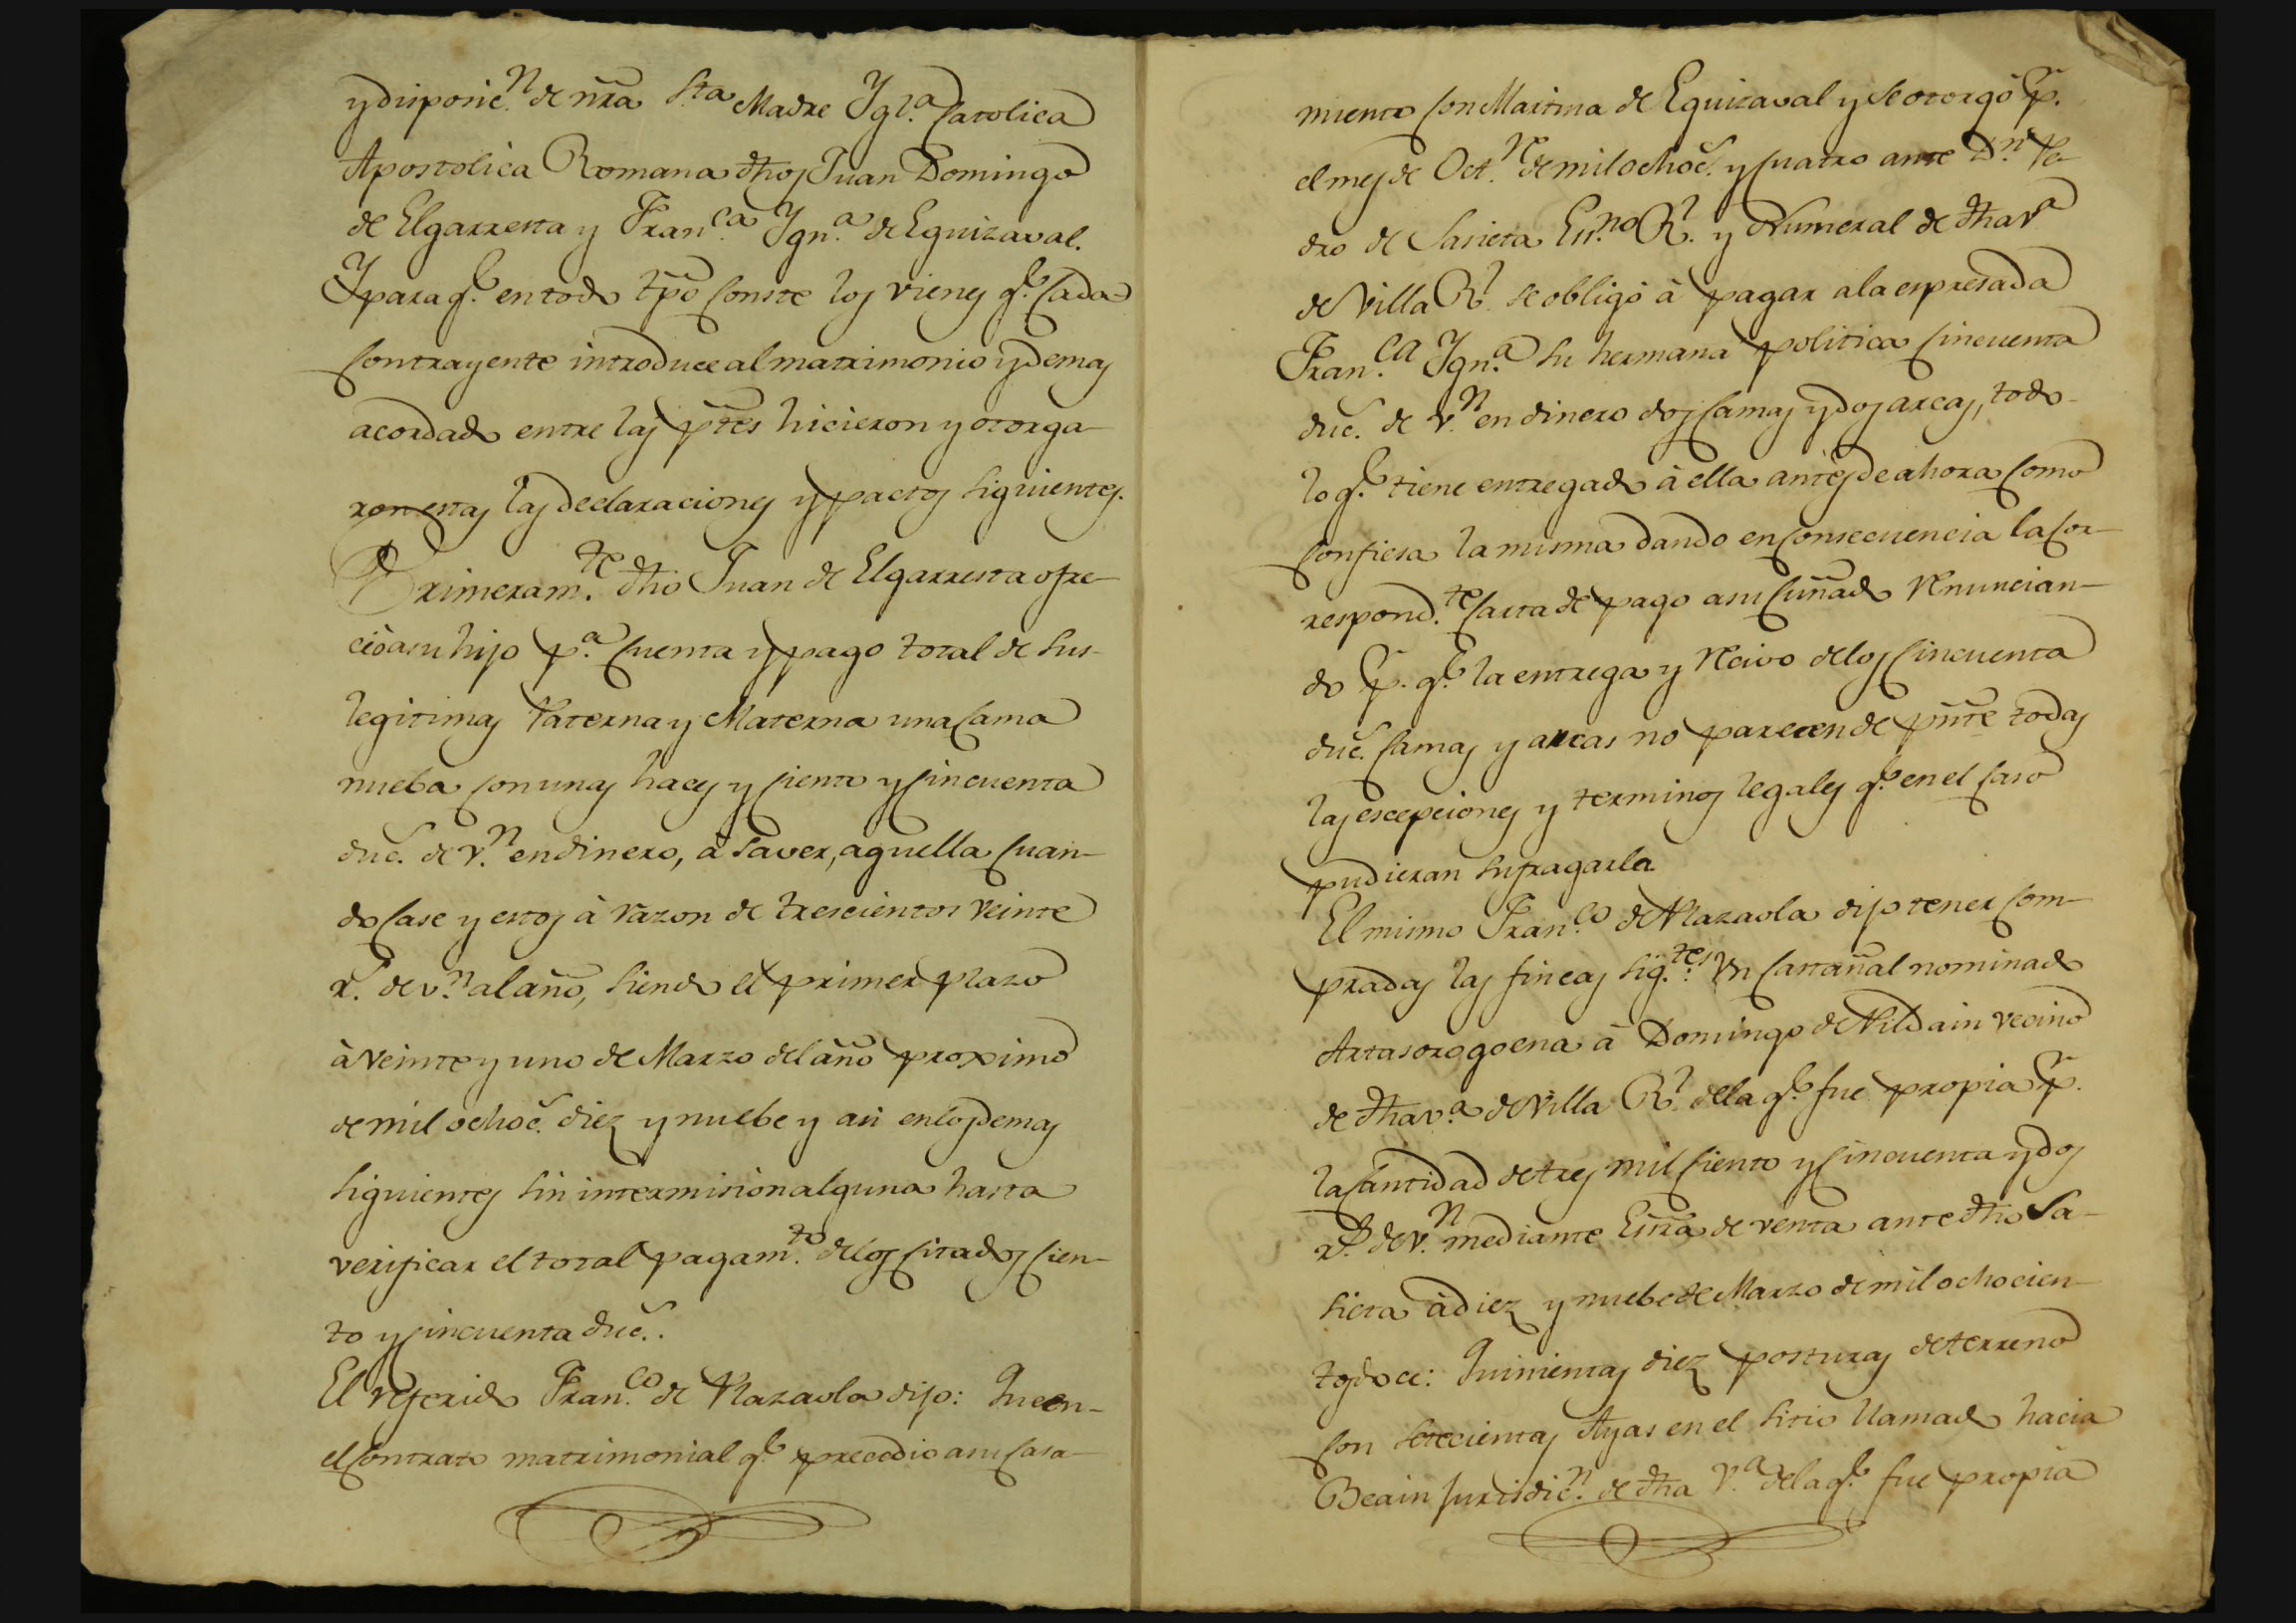 y disposic.n de nr̃a Sta Madre Ygl.a Catolica
Apostolica Romana dh̃os Juan Domingo
de Elgarresta y Fran.ca Ygn.a de Eguizaval.
Y para q.e en todo tp̃o conste los vienes q.e cada
contrayente introduce al matrimonio y demas
acordado entre las pt̃es hicieron y otorga-
ron estas las declaraciones y pactos siguientes.
Primeram.te dh̃o Juan de Elgarresta ofre-
ció a su hijo p.a cuenta y pago total de sus
legitimas Paterna y Materna una cama
nueba con unas haces y ciento y cincuenta
duc.s de v.n en dinero, à saver, aquella cuan-
do case y estos à razon de trescientos veinte
r.s de v.n al año, siendo el primer plazo
à veinte y uno de Marzo del año proximo
de mil ochoc.s diez y nuebe y asi en los demas
siguientes sin intermision alguna hasta
verificar el total pagam.to de los citados cien-
to y cincuenta duc.s.
El referido Fran.co de Plazaola dijo: Que en-
el contrato matrimonial q.e precedio a su casa-
miento con Martina de Eguizaval y se otorgó p.r
el mes de Oct.re de mil ochoc.s y cuatro ante D.n Pe-
dro de Sasieta Es.no R.l y Numeral de dh̃a v.a
de Villa R.l se obligó à pagar a la espresada
Fran.ca Ygn.a su hermana politica cincuenta
duc.s de v.n en dinero dos camas y dos arcas, todo
lo q.e tiene entregado à ella antes de ahora como
confiesa la misma dando en consecuencia la cor-
respond.te carta de pago a su cuñado renuncian-
do p.r q.e la entrega y recivo de los cincuenta
duc.s camas y arcas no parecen de pñte todas
las escepciones y terminos legales q.e en el caso
pudieran sufragarla.
El mismo Fran.co de Plazaola dijo tener com-
pradas las fincas sig.tes: Un castañal nominado
Artasorogoena à Domingo de Yildain vecino
de dh̃a v.a de Villa R.l de la q.e fue propia p.r
la cantidad de tres mil ciento y cincuenta y dos
r.s de v.n mediante Esr̃a de venta ante dh̃o Sa-
sieta à diez y nuebe de Marzo de mil ochocien-
tos doce: Quinientas diez posturas de terreno
con setecientas Ayas en el sitio llamado hacia
Beain jurisdic.n de dh̃a v.a de la q.e fue propia